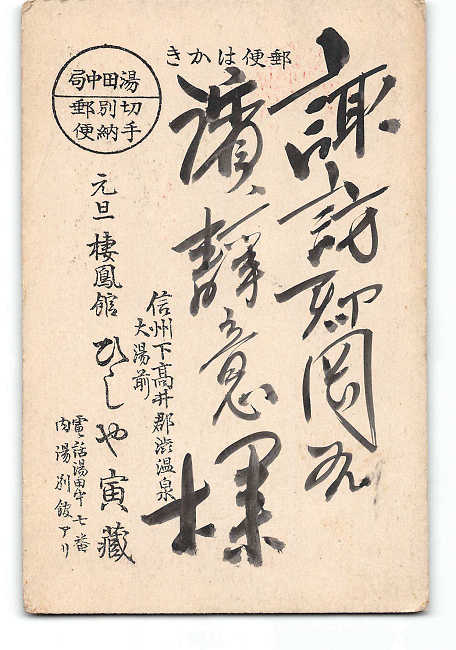 郵便はかき
湯田中局
切手別納郵便
諏訪郡岡谷
濱 静意様
信州下高井郡渋温泉
大湯前
元旦 棲鳳館 ひしや寅藏
電話湯田中七番
内湯別館アリ